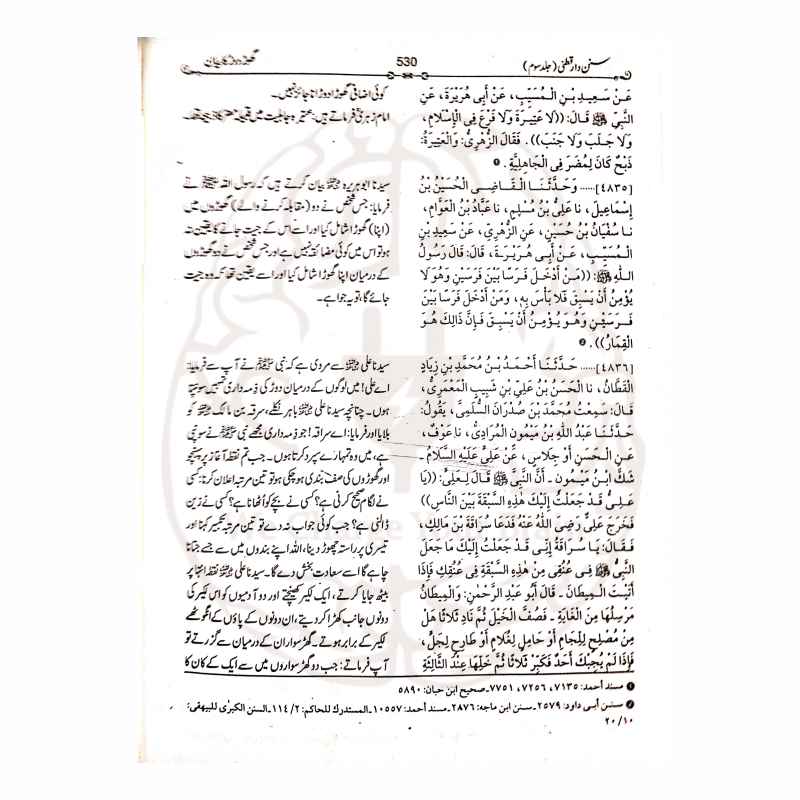 سنن دار قطنی (جلد سوم)
530
گھڑ دوڑ کا بیان
عَنْ سَعِيدِ بْنِ الْمُسَيِّبِ، عَنْ أَبِي هُرَيْرَةَ، عَنِ
النَّبِيِّ ﷺ قَالَ: ((لَا عَتِيرَةَ وَلَا فَرَعَ فِي الْإِسْلَامِ،
وَلَا جَلَبَ وَلَا جَنَبَ)). فَقَالَ الزُّهْرِيُّ: وَالْعَتِيرَةُ:
ذَبْحٌ كَانَ لِمُضَرَ فِي الْجَاهِلِيَّةِ. ❶
[٤٨٣٥]...... وَحَدَّثَنَا الْقَاضِي الْحُسَيْنُ بْنُ
إِسْمَاعِيلَ، نا عَلِيُّ بْنُ مُسْلِمٍ، نا عَبَّادُ بْنُ الْعَوَّامِ،
نا سُفْيَانُ بْنُ حُسَيْنٍ، عَنِ الزُّهْرِيِّ، عَنْ سَعِيدِ بْنِ
الْمُسَيِّبِ، عَنْ أَبِي هُرَيْرَةَ، قَالَ: قَالَ رَسُولُ
اللّٰهِ ﷺ: ((مَنْ أَدْخَلَ فَرَسًا بَيْنَ فَرَسَيْنِ وَهُوَ لَا
يُؤْمِنُ أَنْ يَسْبِقَ فَلَا بَأْسَ بِهِ، وَمَنْ أَدْخَلَ فَرَسًا بَيْنَ
فَرَسَيْنِ وَهُوَ يُؤْمِنُ أَنْ يَسْبِقَ فَإِنَّ ذَالِكَ هُوَ
الْقِمَارُ)). ❷
[٤٨٣٦]...... حَدَّثَنَا أَحْمَدُ بْنُ مُحَمَّدِ بْنِ زِيَادٍ
الْقَطَّانُ، نا الْحَسَنُ بْنُ عَلِيِّ بْنِ شَبِيبٍ الْمَعْمَرِيُّ،
قَالَ: سَمِعْتُ مُحَمَّدَ بْنَ صُدْرَانَ السُّلَمِيَّ، يَقُولُ:
حَدَّثَنَا عَبْدُ اللّٰهِ بْنُ مَيْمُونٍ الْمُرَادِيُّ، نا عَوْفٌ،
عَنِ الْحَسَنِ أَوْ خِلَاسٍ، عَنْ عَلِيٍّ عَلَيْهِ السَّلَامُ-
شَكَّ ابْنُ مَيْمُونٍ- أَنَّ النَّبِيَّ ﷺ قَالَ لِعَلِيٍّ: ((يَا
عَلِيُّ قَدْ جَعَلْتُ إِلَيْكَ هٰذِهِ السَّبْقَةَ بَيْنَ النَّاسِ))
فَخَرَجَ عَلِيٌّ رَضِيَ اللّٰهُ عَنْهُ فَدَعَا سُرَاقَةَ بْنَ مَالِكٍ،
فَقَالَ: يَا سُرَاقَةُ إِنِّي قَدْ جَعَلْتُ إِلَيْكَ مَا جَعَلَ
النَّبِيُّ ﷺ فِي عُنُقِي مِنْ هٰذِهِ السَّبْقَةِ فِي عُنُقِكَ فَإِذَا
أَتَيْتَ الْمِيطَانَ- قَالَ أَبُو عَبْدِ الرَّحْمٰنِ: وَالْمِيطَانُ
مَرْسِلُهَا مِنَ الْغَايَةِ- فَصُفَّ الْخَيْلَ ثُمَّ نَادِ ثَلَاثًا هَلْ
مِنْ مُصْلِحٍ لِلِجَامٍ أَوْ حَامِلٍ لِغُلَامٍ أَوْ طَارِحٍ لِجُلٍّ،
فَإِذَا لَمْ يُجِبْكَ أَحَدٌ فَكَبِّرْ ثَلَاثًا ثُمَّ خَلِّهَا عِنْدَ الثَّالِثَةِ
کوئی اضافی گھوڑا دوڑانا جائز نہیں۔
امام زہریؒ فرماتے ہیں: عتیرہ جاہلیت میں
سیدنا ابو ہریرہ ؓ بیان کرتے ہیں کہ رسول اللہ ﷺ نے
فرمایا: جس شخص نے دو (مقابلہ کرنے والے) گھوڑوں میں
(اپنا) گھوڑا شامل کیا اور اسے اس کے جیت جانے کا یقین نہ
ہو تو اس میں کوئی مضائقہ نہیں ہے اور جس شخص نے دو گھوڑوں
کے درمیان اپنا گھوڑا شامل کیا اور اسے یقین تھا کہ وہ جیت
جائے گا، تو یہ جوا ہے۔
سیدنا علی ؓ سے مروی ہے کہ نبی ﷺ نے آپ سے فرمایا:
اے علی! میں لوگوں کے درمیان دوڑ کی ذمہ داری تمہیں سونپتا
ہوں۔ چنانچہ سیدنا علی ؓ باہر نکلے، سرقہ بن مالک ؓ کو
بلایا اور فرمایا: اے سراقہ! جو ذمہ داری مجھے نبی ﷺ نے سونپی
ہے، میں وہ تمہارے سپرد کرتا ہوں۔ جب تم نقطۂ آغاز پر پہنچو
اور گھوڑوں کی صف بندی ہو چکی ہو تو تین مرتبہ اعلان کرنا: کسی
نے لگام صحیح کرنی ہے؟ کسی نے بچے کو اٹھانا ہے؟ کسی نے زین
ڈالنی ہے؟ جب کوئی جواب نہ دے تو تین مرتبہ تکبیر کہنا اور
تیسری پر راستہ چھوڑ دینا، اللہ اپنے بندوں میں سے جسے جتانا
چاہے گا اسے سعادت بخش دے گا۔ سیدنا علی ؓ نقطۂ انتہا پر
بیٹھ جایا کرتے، ایک لکیر کھینچتے اور دو آدمیوں کو اس لکیر کی
دونوں جانب کھڑا کر دیتے، ان دونوں کے پاؤں کے انگوٹھے
لکیر کے برابر ہوتے۔ گھڑ سوار ان کے درمیان سے گزرتے تو
آپ فرماتے: جب دو گھڑ سواروں میں سے ایک کے کان کا
❶ مسند أحمد: ٧١٣٥، ٧٢٥٦، ٧٧٥١۔صحیح ابن حبان: ٥٨٩٠
❷ سنن أبي داود: ٢٥٧٩۔سنن ابن ماجه: ٢٨٧٦۔مسند أحمد: ١٠٥٥٧۔المستدرك للحاكم: ٢/ ١١٤۔السنن الكبرى للبيهقي:
١٠/ ٢٠